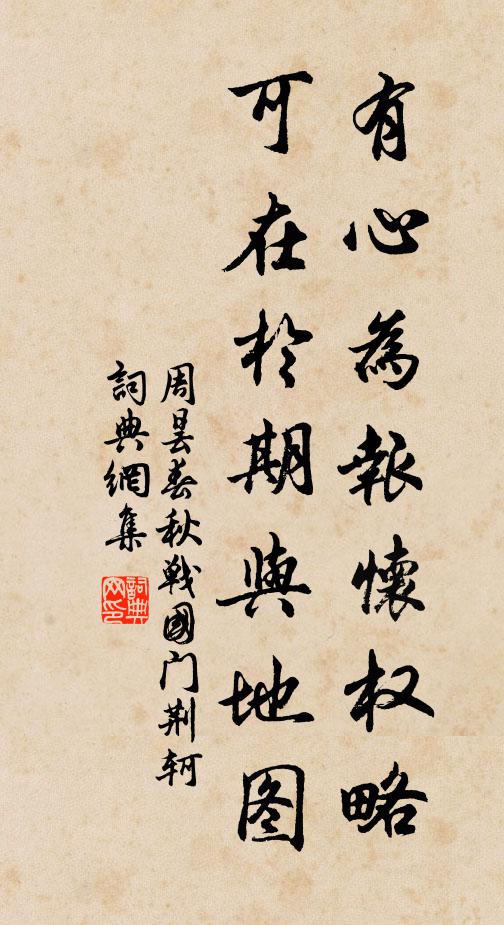 有心為報懷权略
可在於期與地图
周昙春秋戰國门荆轲
詞典網集
詞典网印